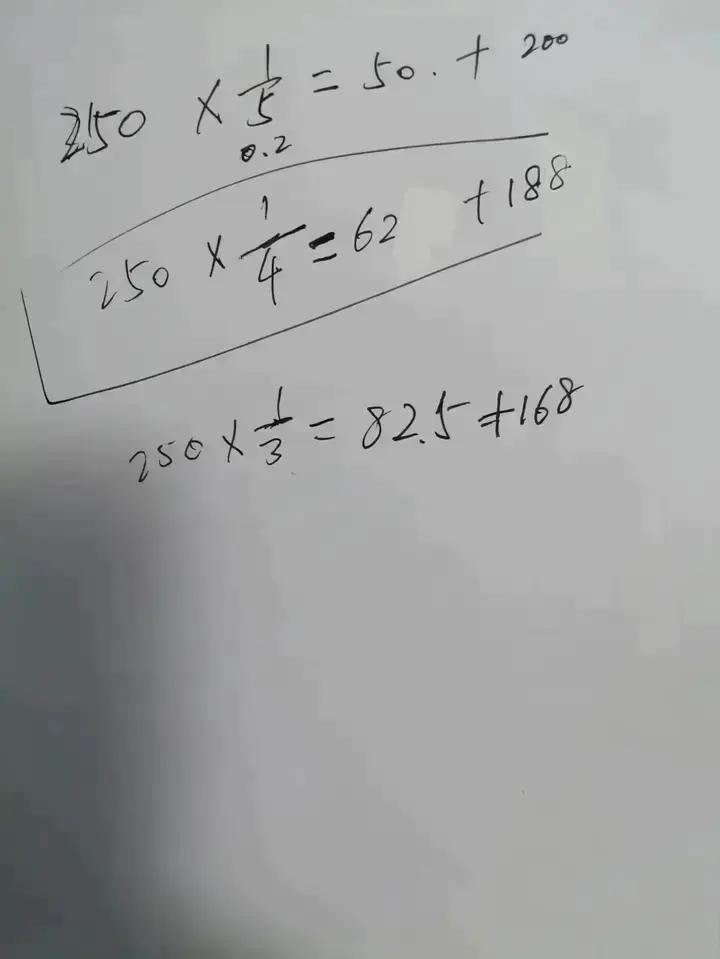 250 × 1/5 = 50. + 200
0.2
250 × 1/4 = 62 + 188
250 × 1/3 = 82.5 + 168